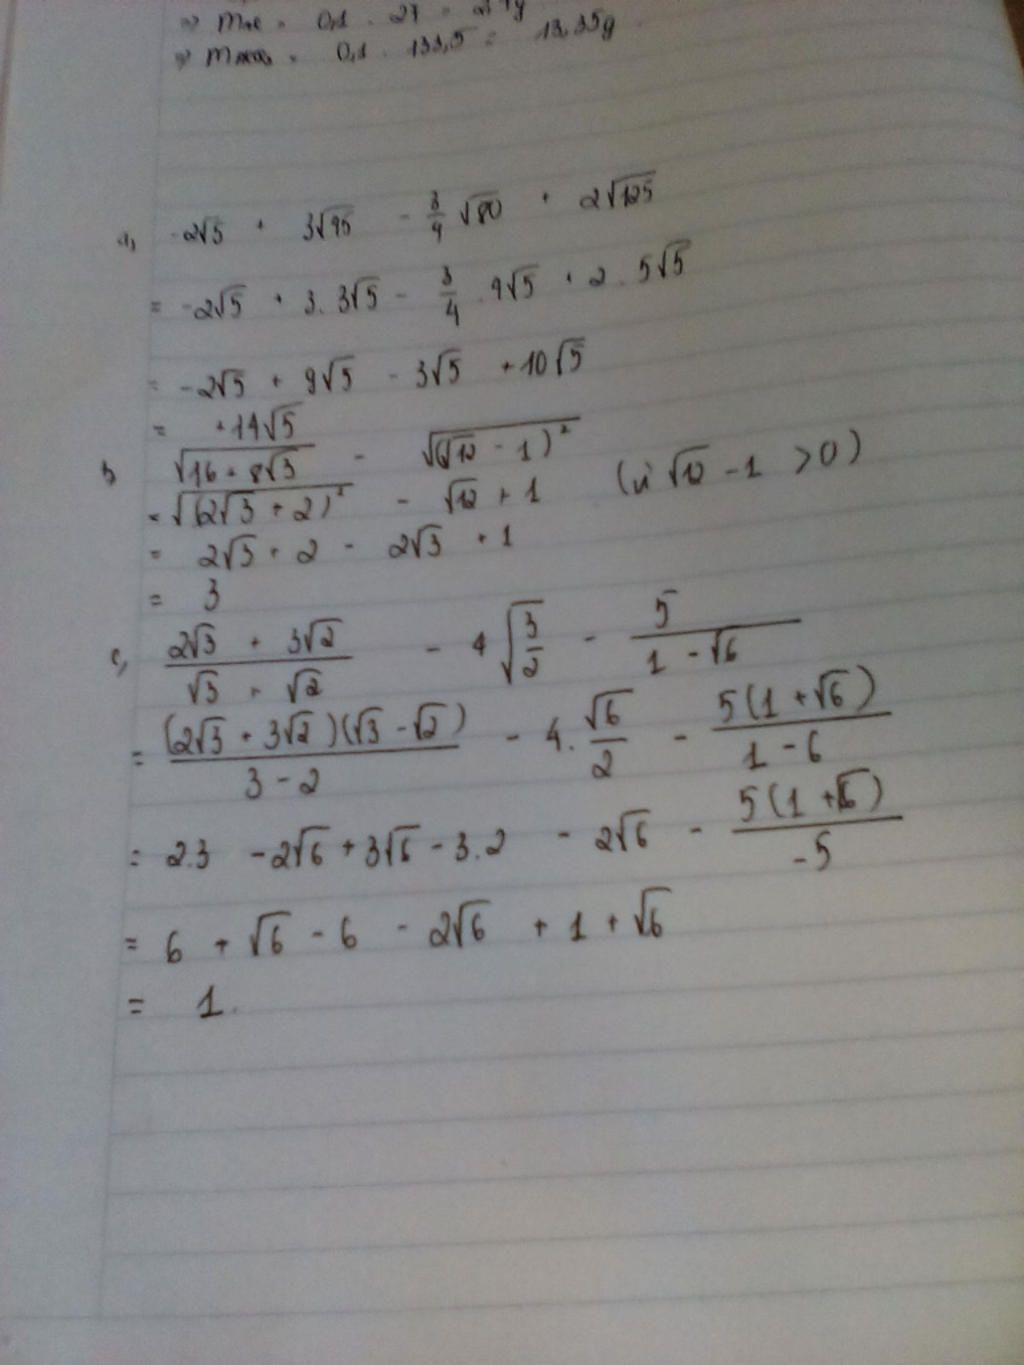 => m = 0,1 . 27 = 2,7g
=> m = 0,1 . 133,5 = 13,35g
a, -2√5 + 3√45 - 3/4 √80 + 2√125
= -2√5 + 3.3√5 - 3/4 . 4√5 + 2 . 5√5
= -2√5 + 9√5 - 3√5 + 10√5
= +14√5
b, √(16 + 8√3) - √((√12 - 1)²)
= √((2√3 + 2)²) - √12 + 1 (vì √12 - 1 > 0)
= 2√3 + 2 - 2√3 + 1
= 3
c, (2√3 + 3√2)/(√3 + √2) - 4√(3/2) - 5/(1 - √6)
= (2√3 + 3√2)(√3 - √2)/(3 - 2) - 4. √6/2 - 5(1 + √6)/(1 - 6)
= 2.3 - 2√6 + 3√6 - 3.2 - 2√6 - 5(1 + √6)/-5
= 6 + √6 - 6 - 2√6 + 1 + √6
= 1.